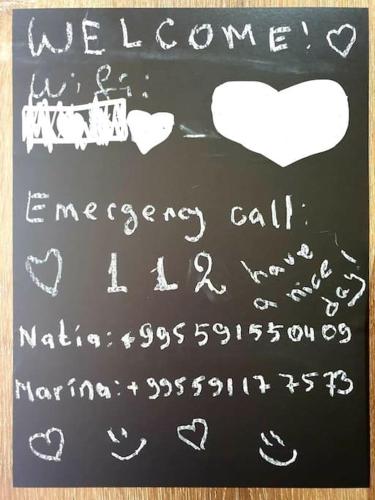 WELCOME!
Wifi:
Emergency call:
112
have
a nice
day!
Natia: +995 591550409
Marina: +995591177573